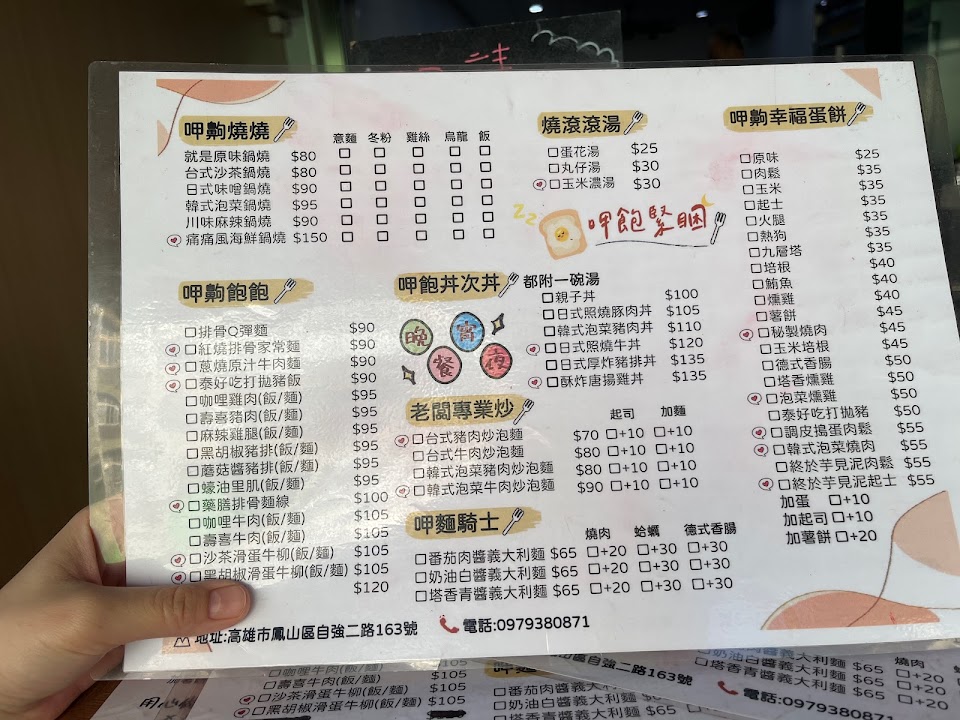 呷齁燒燒
意麵 冬粉 雞絲 烏龍 飯
就是原味鍋燒 $80 □ □ □ □ □
台式沙茶鍋燒 $80 □ □ □ □ □
日式味噌鍋燒 $90 □ □ □ □ □
韓式泡菜鍋燒 $95 □ □ □ □ □
川味麻辣鍋燒 $90 □ □ □ □ □
痛痛風海鮮鍋燒 $150 □ □ □ □ □
呷齁飽飽
□排骨Q彈麵 $90
□紅燒排骨家常麵 $90
□蔥燒原汁牛肉麵 $90
□泰好吃打拋豬飯 $90
□咖哩雞肉(飯/麵) $95
□壽喜豬肉(飯/麵) $95
□麻辣雞腿(飯/麵) $95
□黑胡椒豬排(飯/麵) $95
□蘑菇醬豬排(飯/麵) $95
□蠔油里肌(飯/麵) $95
□藥膳排骨麵線 $100
□咖哩牛肉(飯/麵) $105
□壽喜牛肉(飯/麵) $105
□沙茶滑蛋牛柳(飯/麵) $105
□黑胡椒滑蛋牛柳(飯/麵) $105
$120
燒滾滾湯
□蛋花湯 $25
□丸仔湯 $30
□玉米濃湯 $30
zz
呷飽緊睏
呷飽丼次丼 都附一碗湯
□親子丼 $100
□日式照燒豚肉丼 $105
□韓式泡菜豬肉丼 $110
□日式照燒牛丼 $120
□日式厚炸豬排丼 $135
□酥炸唐揚雞丼 $135
晚 宵
餐 夜
老闆專業炒
起司 加麵
□台式豬肉炒泡麵 $70 □+10 □+10
□台式牛肉炒泡麵 $80 □+10 □+10
□韓式泡菜豬肉炒泡麵 $80 □+10 □+10
□韓式泡菜牛肉炒泡麵 $90 □+10 □+10
呷麵騎士
燒肉 蛤蠣 德式香腸
□番茄肉醬義大利麵 $65 □+20 □+30 □+30
□奶油白醬義大利麵 $65 □+20 □+30 □+30
□塔香青醬義大利麵 $65 □+20 □+30 □+30
呷齁幸福蛋餅
□原味 $25
□肉鬆 $35
□玉米 $35
□起士 $35
□火腿 $35
□熱狗 $35
□九層塔 $35
□培根 $40
□鮪魚 $40
□燻雞 $40
□薯餅 $45
□秘製燒肉 $45
□玉米培根 $45
□德式香腸 $50
□塔香燻雞 $50
□泡菜燻雞 $50
□泰好吃打拋豬 $50
□調皮搗蛋肉鬆 $55
□韓式泡菜燒肉 $55
□終於芋見泥肉鬆 $55
□終於芋見泥起士 $55
加蛋 □+10
加起司 □+10
加薯餅 □+20
地址:高雄市鳳山區自強二路163號 電話:0979380871
□咖哩牛肉(飯/麵) $105
□壽喜牛肉(飯/麵) $105
□沙茶滑蛋牛柳(飯/麵) $105
□黑胡椒滑蛋牛柳(飯/麵) $105
呷麵
□番茄肉醬義大利麵 $65
□奶油白醬義大利麵 $65
□塔香青醬義大利麵 $65
山區自強二路163號
□奶油白醬義大利麵 $65 燒肉
□塔香青醬義大利麵 $65 □+20
電話:0979380871